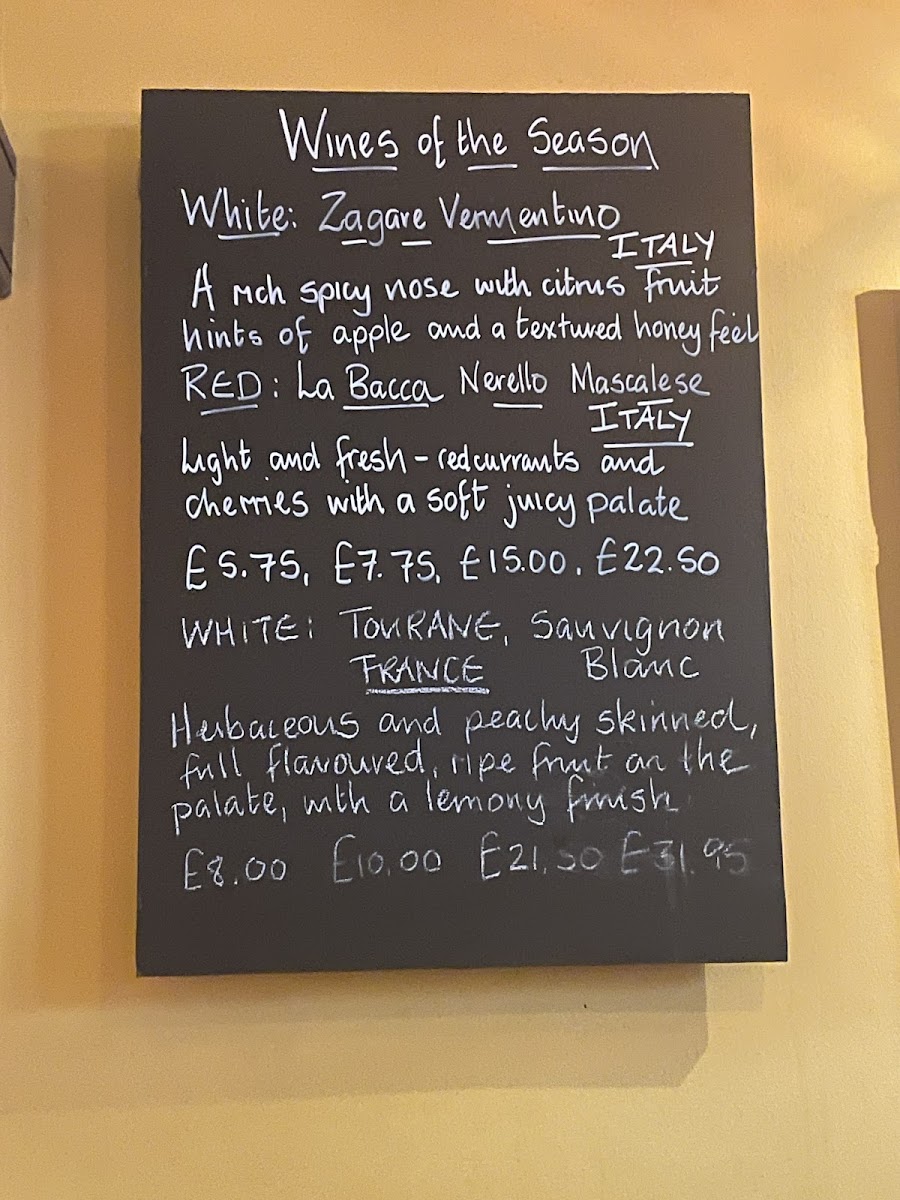 Wines of the Season
White: Zagare Vermentino
ITALY
A rich spicy nose with citrus fruit
hints of apple and a textured honey feel
RED: La Bacca Nerello Mascalese
ITALY
Light and fresh - redcurrants and
cherries with a soft juicy palate
£5.75, £7.75, £15.00, £22.50
WHITE: TOURANE, Sauvignon
FRANCE Blanc
Herbaceous and peachy skinned,
full flavoured, ripe fruit on the
palate, with a lemony finish
£8.00 £10.00 £21.50 £31.95